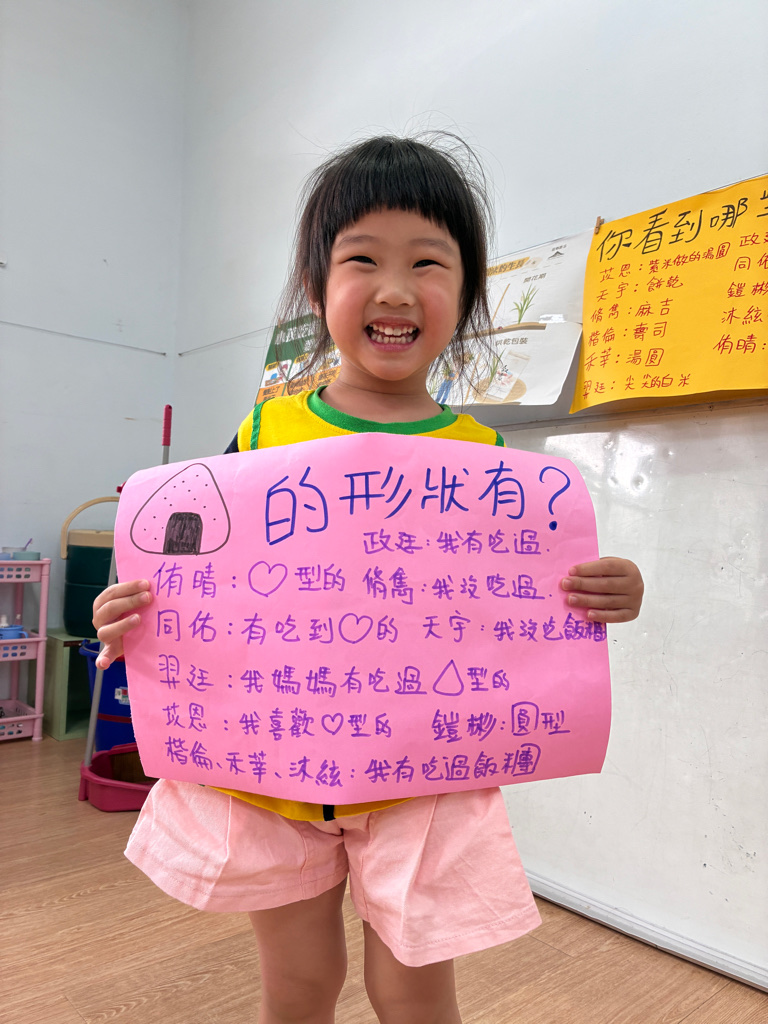 的形狀有？
政廷：我有吃過.
侑晴：♡型的 脩雋：我沒吃過.
同佑：有吃到♡的 天宇：我沒吃飯糰
羿廷：我媽媽有吃過△型的
苡恩：我喜歡♡型的 鎧彬：圓型
楷倫、禾華、沐絃：我有吃過飯糰
你看到哪
苡恩：紫米做的湯圓
天宇：餅乾
脩雋：麻吉
楷倫：壽司
禾華：湯圓
羿廷：尖尖的白米
政廷
同佑
鎧彬
沐絃
侑晴：
開花期
烘乾包裝